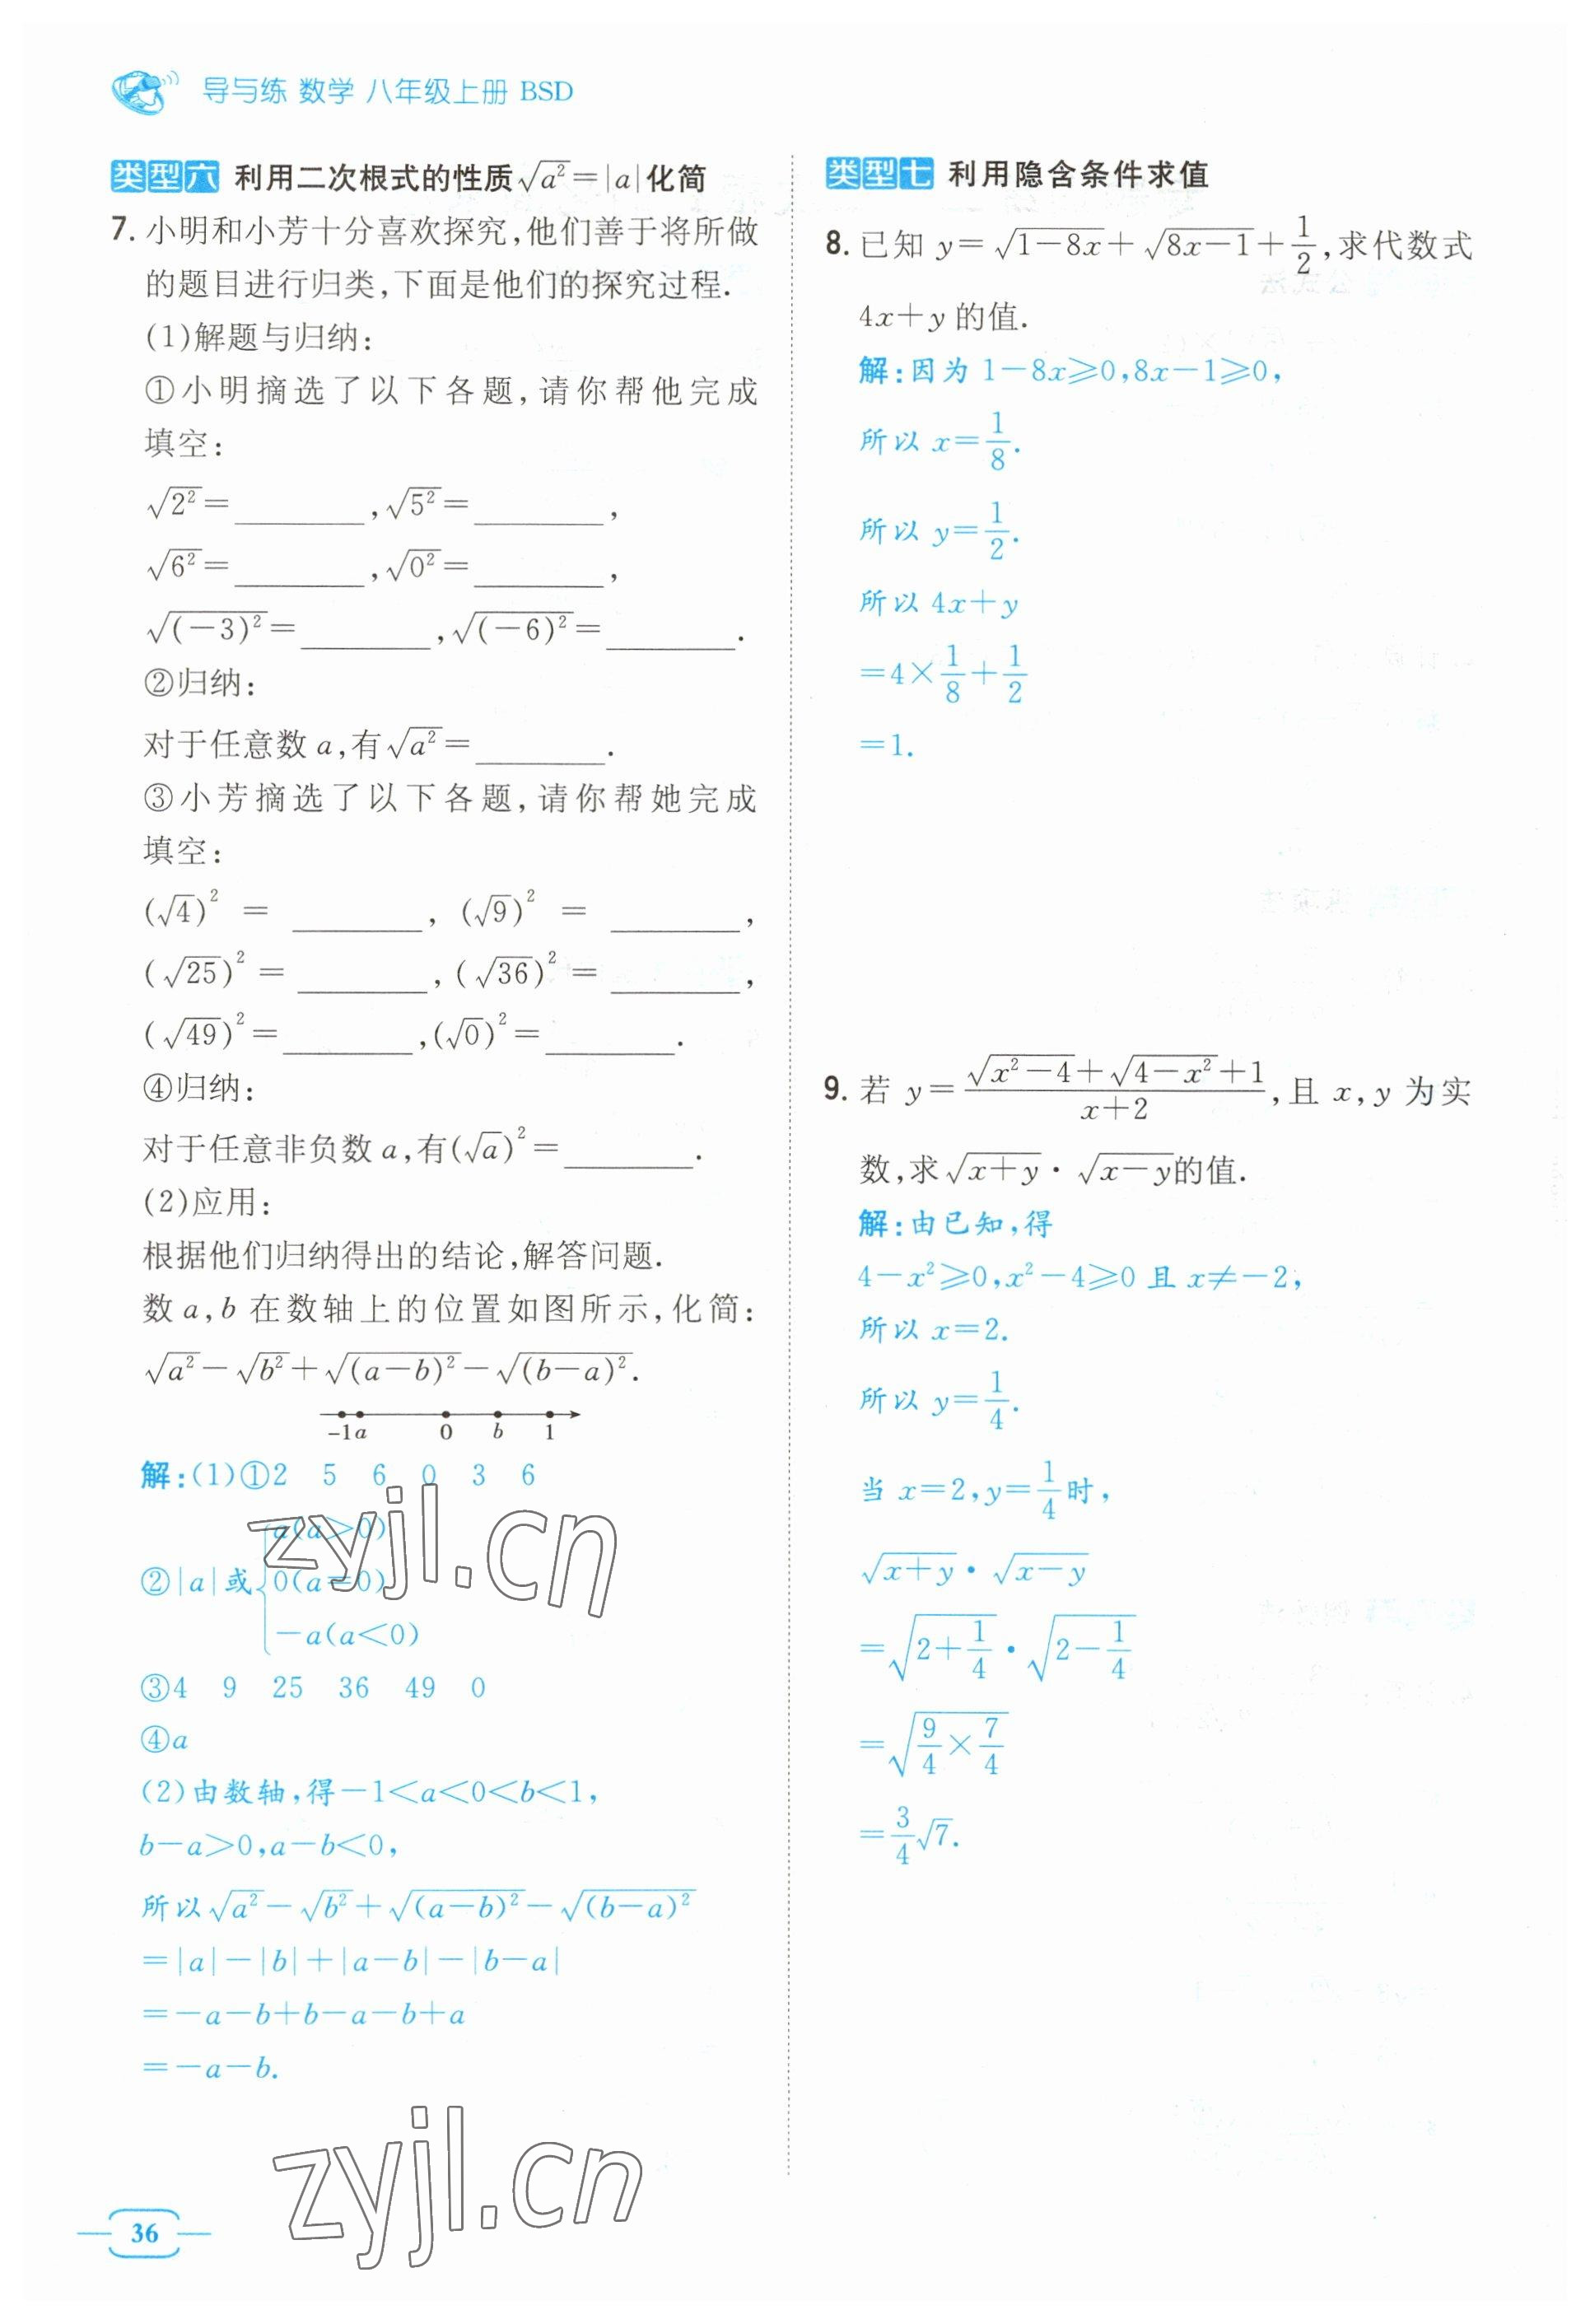 导与练 数学 八年级上册 BSD
类型六 利用二次根式的性质√a²=|a|化简
7. 小明和小芳十分喜欢探究,他们善于将所做
的题目进行归类,下面是他们的探究过程.
(1)解题与归纳:
①小明摘选了以下各题,请你帮他完成
填空:
√2²=________,√5²=________,
√6²=________,√0²=________,
√(-3)²=________,√(-6)²=________.
②归纳:
对于任意数 a,有√a²=________.
③小芳摘选了以下各题,请你帮她完成
填空:
(√4)²=________,(√9)²=________,
(√25)²=________,(√36)²=________,
(√49)²=________,(√0)²=________.
④归纳:
对于任意非负数 a,有(√a)²=________.
(2)应用:
根据他们归纳得出的结论,解答问题.
数 a,b 在数轴上的位置如图所示,化简:
√a²-√b²+√(a-b)²-√(b-a)².
-1 a 0 b 1
解:(1)①2 5 6 0 3 6
②|a|或{a(a>0)
0(a=0)
-a(a<0)
③4 9 25 36 49 0
④a
(2)由数轴,得-1<a<0<b<1,
b-a>0,a-b<0,
所以√a²-√b²+√(a-b)²-√(b-a)²
=|a|-|b|+|a-b|-|b-a|
=-a-b+b-a-b+a
=-a-b.
类型七 利用隐含条件求值
8. 已知 y=√(1-8x)+√(8x-1)+1/2,求代数式
4x+y 的值.
解:因为 1-8x≥0,8x-1≥0,
所以 x=1/8.
所以 y=1/2.
所以 4x+y
=4×1/8+1/2
=1.
9. 若 y=(√(x²-4)+√(4-x²)+1)/(x+2),且 x,y 为实
数,求√(x+y)·√(x-y)的值.
解:由已知,得
4-x²≥0,x²-4≥0 且 x≠-2,
所以 x=2.
所以 y=1/4.
当 x=2,y=1/4时,
√(x+y)·√(x-y)
=√(2+1/4)·√(2-1/4)
=√(9/4×7/4)
=3/4√7.
zyjl.cn
zyjl.cn
36